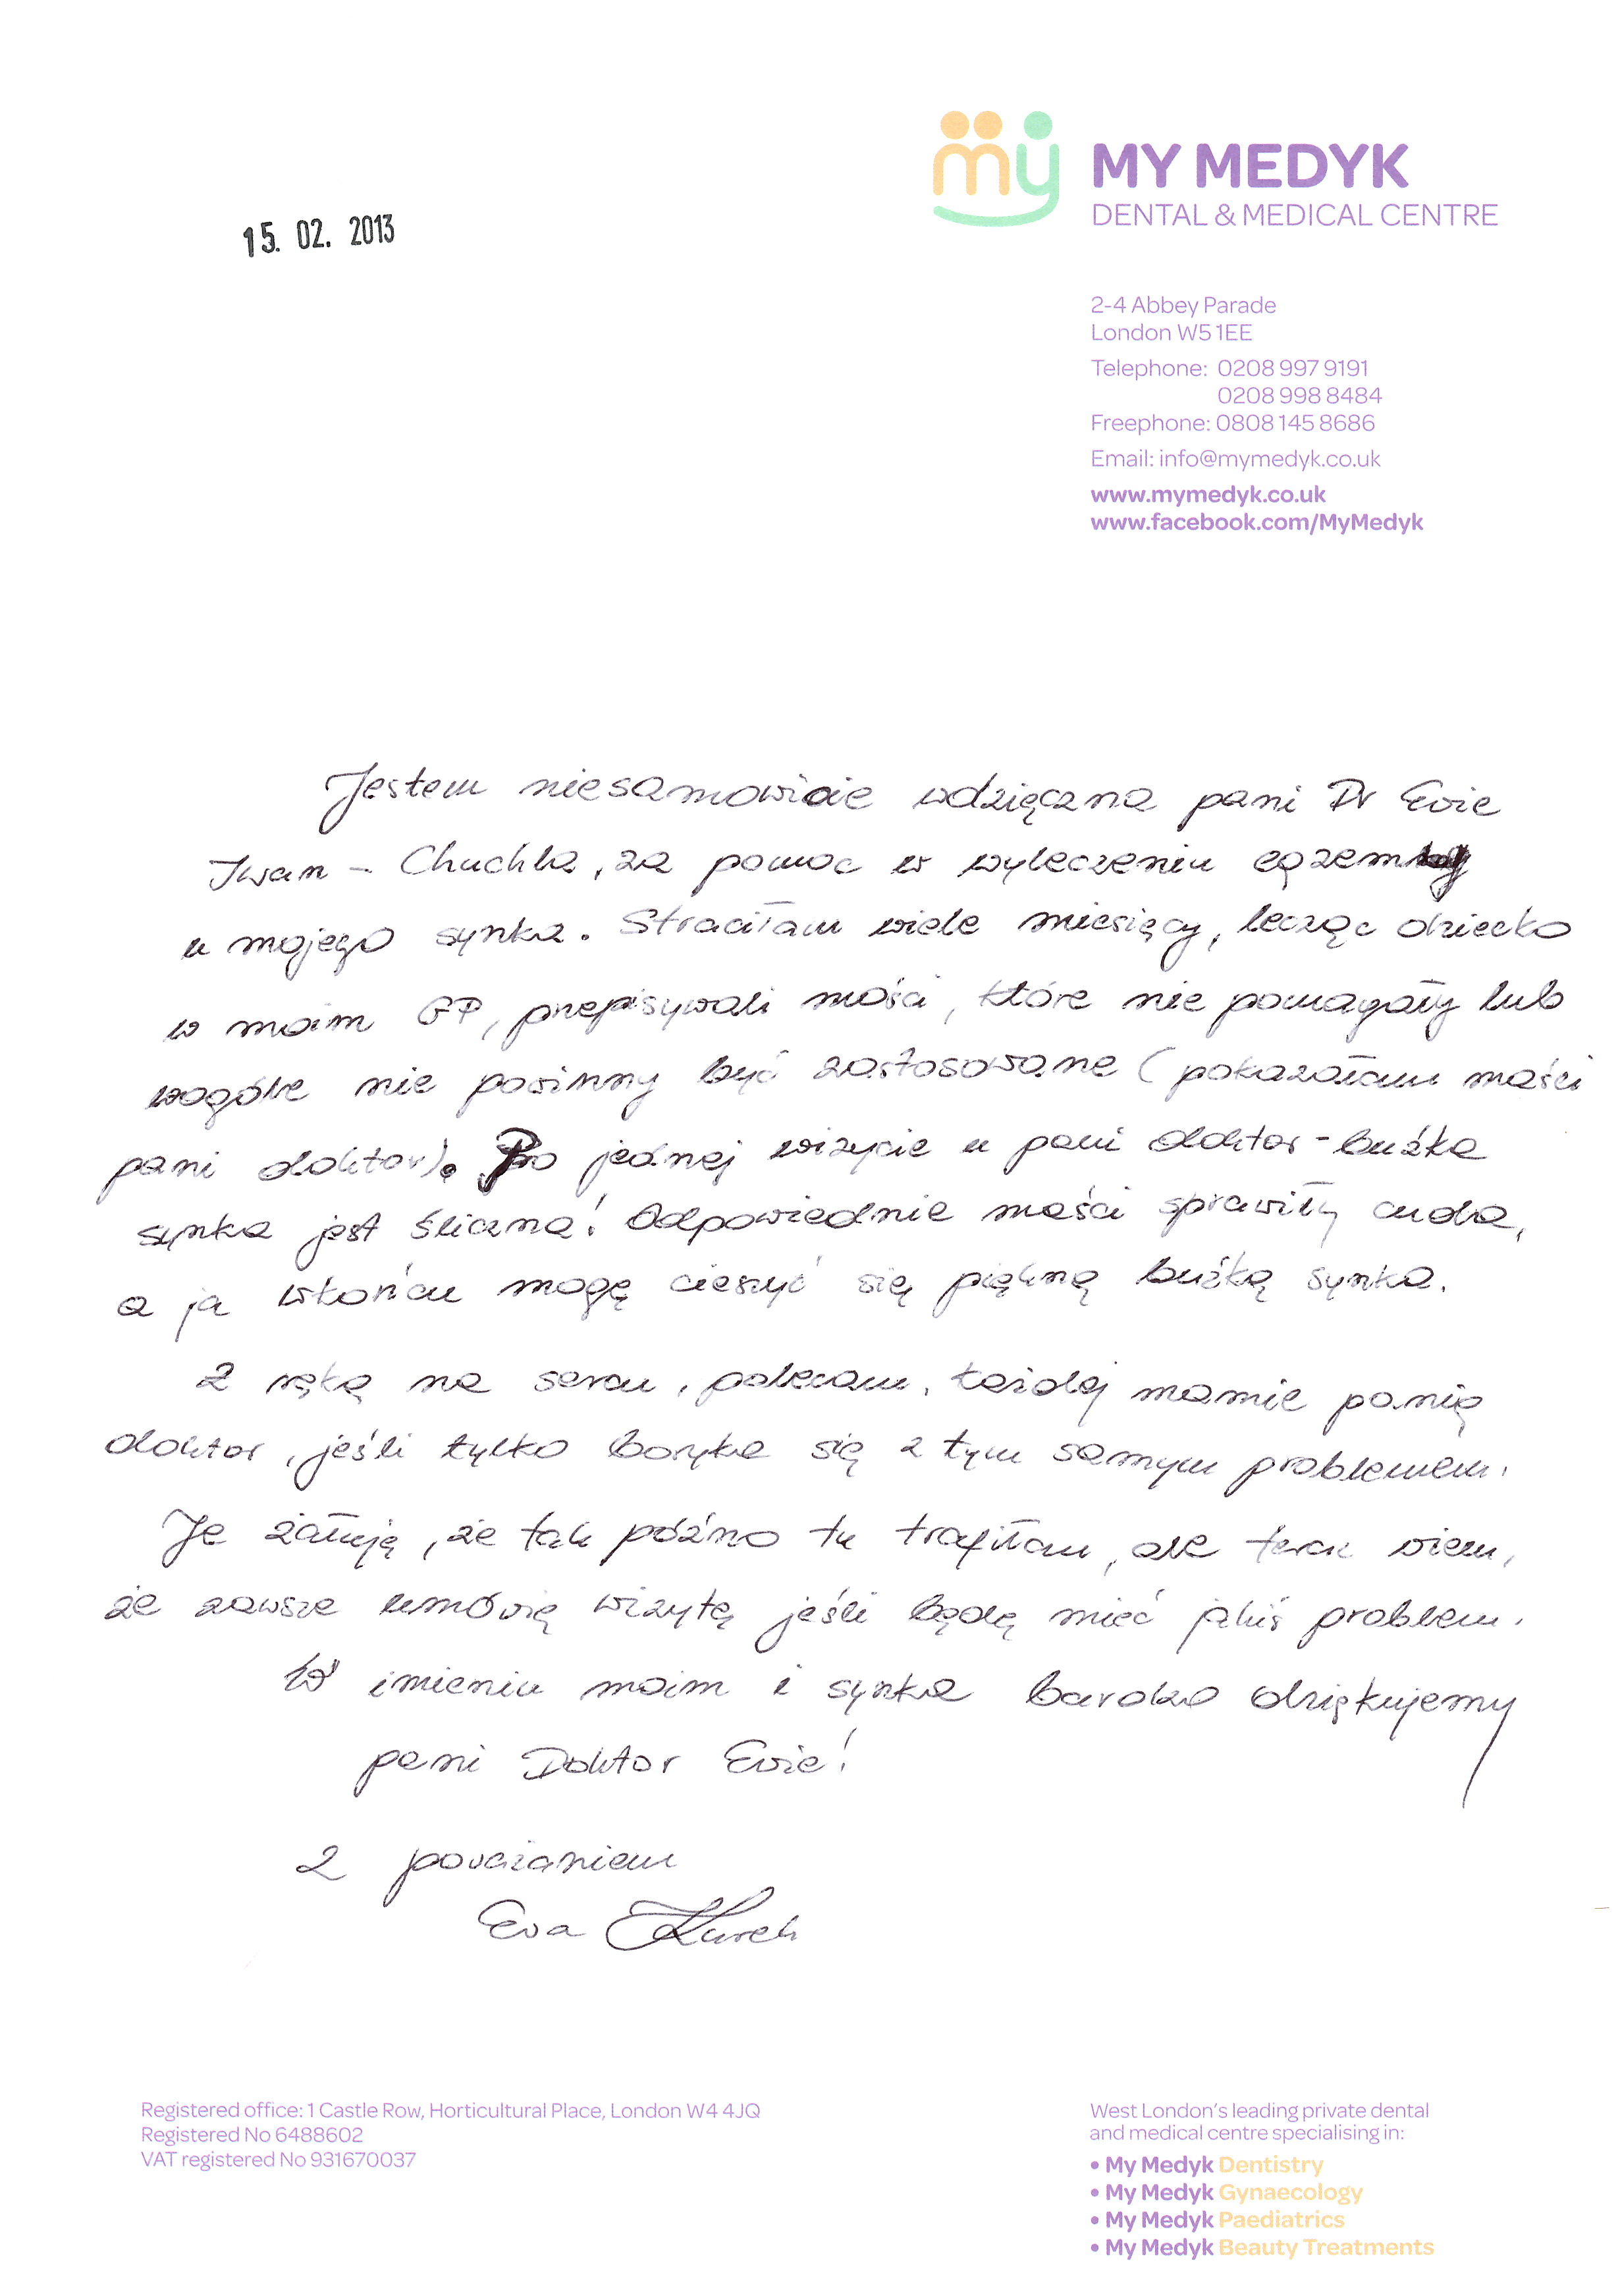 my MY MEDYK
DENTAL & MEDICAL CENTRE
15. 02. 2013
2-4 Abbey Parade
London W5 1EE
Telephone: 0208 997 9191
0208 998 8484
Freephone: 0808 145 8686
Email: info@mymedyk.co.uk
www.mymedyk.co.uk
www.facebook.com/MyMedyk
Jestem niesamowicie wdzięczna pani Dr Ewie
Iwan - Chuchla, za pomoc w wyleczeniu egzemy
u mojego synka. Straciłam wiele miesięcy, lecząc dziecko
w moim GP, przepisywali maści, które nie pomagały lub
wogóle nie powinny być zastosowane (pokazałam maści
pani doktor). Po jednej wizycie u pani doktor - buźka
synka jest śliczna! Odpowiednie maści sprawiły cuda,
a ja wkońcu mogę cieszyć się piękną buźką synka.
Z ręką na sercu, polecam, każdej mamie panią
doktor, jeśli tylko boryka się z tym samym problemem.
Ja żałuję, że tak późno tu trafiłam, ale teraz wiem,
że zawsze umówię wizytę jeśli będę mieć jakiś problem.
W imieniu moim i synka bardzo dziękujemy
pani Doktor Ewie!
Z poważaniem
Ewa Kurek
Registered office: 1 Castle Row, Horticultural Place, London W4 4JQ
Registered No 6488602
VAT registered No 931670037
West London's leading private dental
and medical centre specialising in:
• My Medyk Dentistry
• My Medyk Gynaecology
• My Medyk Paediatrics
• My Medyk Beauty Treatments